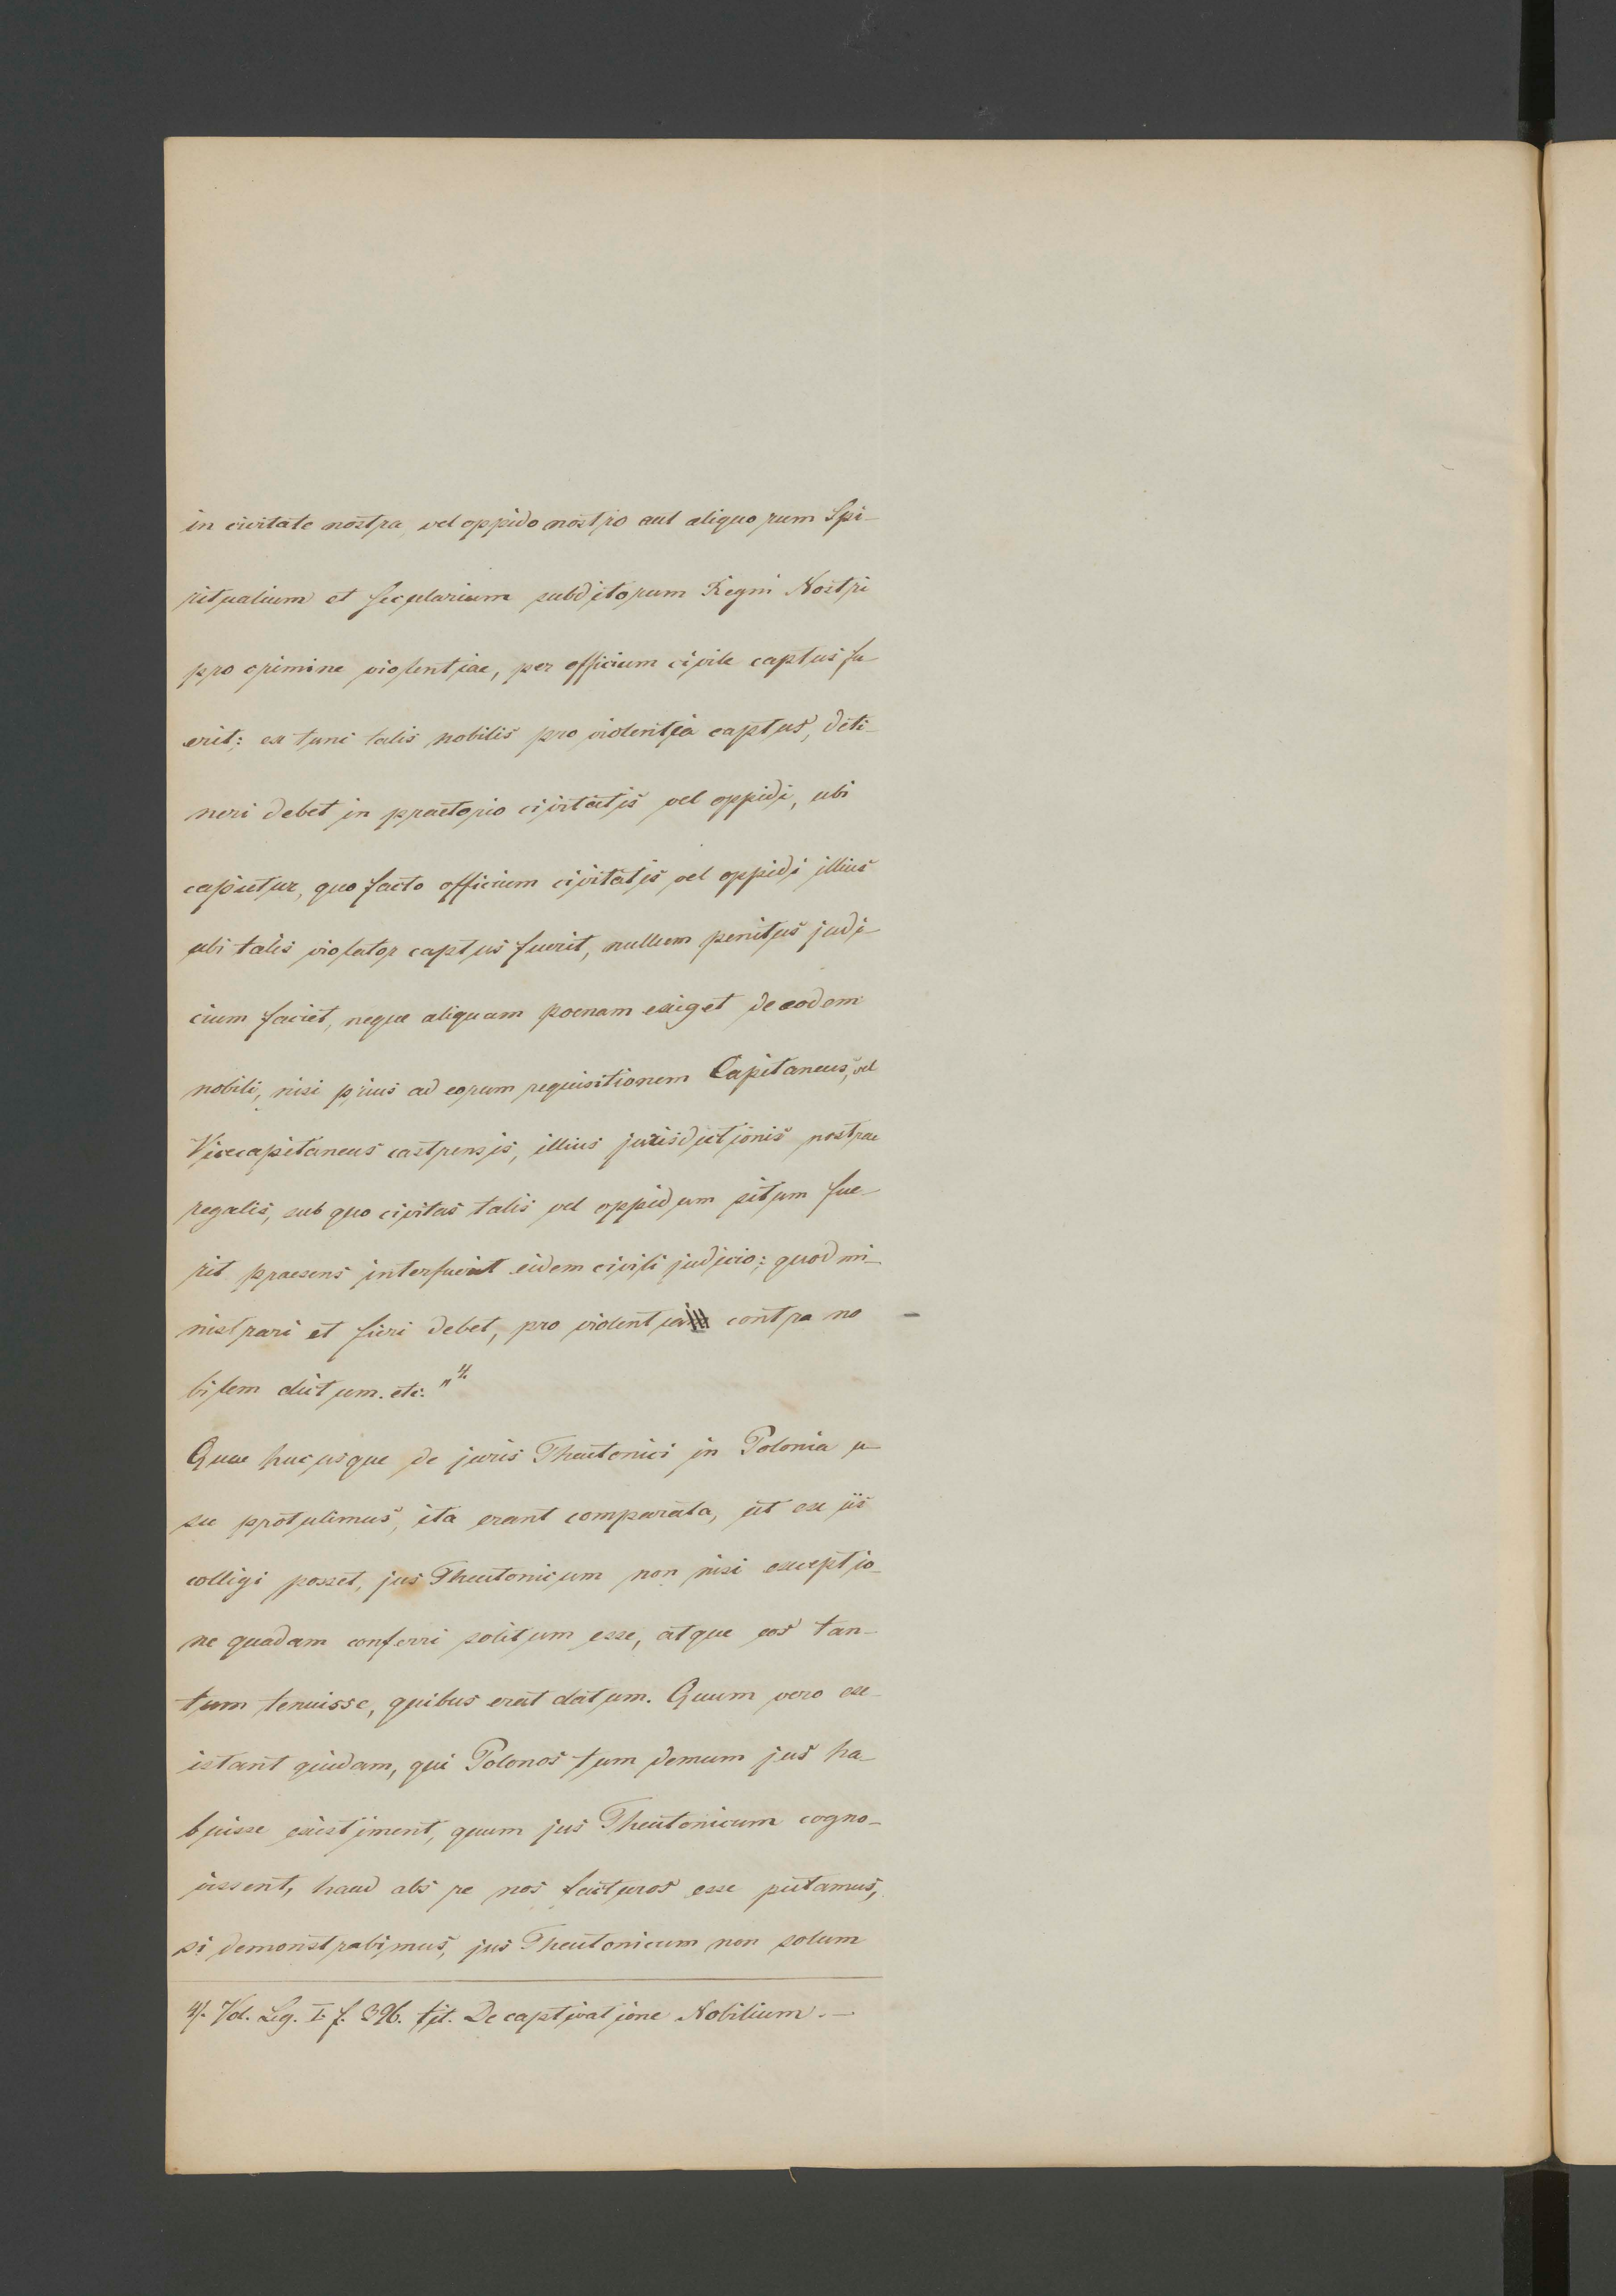 in civitate nostra, vel oppido nostro aut aliquorum Spi-
ritualium et Secularium subditorum Regni Nostri
pro crimine violentiae, per officium civile captus fu
erit: ex tunc talis nobilis pro violentia captus, deti-
neri debet in praetorio civitatis vel oppidi, ubi
capietur, quo facto officium civitatis vel oppidi illius
ubi talis violator captus fuerit, nullum penitus judi-
cium faciet, neque aliquam poenam exiget de eodem
nobili, nisi prius ad eorum requisitionem Capitaneus, vel
Vicecapitaneus castrensis, illius jurisdictionis nostrae
regalis, sub quo civitas talis vel oppidum situm fue-
rit praesens interfuerit eidem civili judicio: quod mi-
nistrari et fieri debet, pro violentia contra no-
bilem dictum. etc. " 4/.
Quae hucusque de juris Theutonici in Polonia u-
su protulimus, ita erant comparata, ut ex iis
colligi posset, jus Theutonicum non nisi exceptio-
ne quadam conferri solitum esse, atque eos tan-
tum tenuisse, quibus erat datum. Quum vero ex-
istant quidam, qui Polonos tum demum jus ha-
buisse existiment, quum jus Theutonicum cogno-
vissent, haud abs re nos facturos esse putamus,
si demonstrabimus, jus Theutonicum non solum
4/. Vol. Leg. I. f. 396. tit. De captivatione Nobilium. —